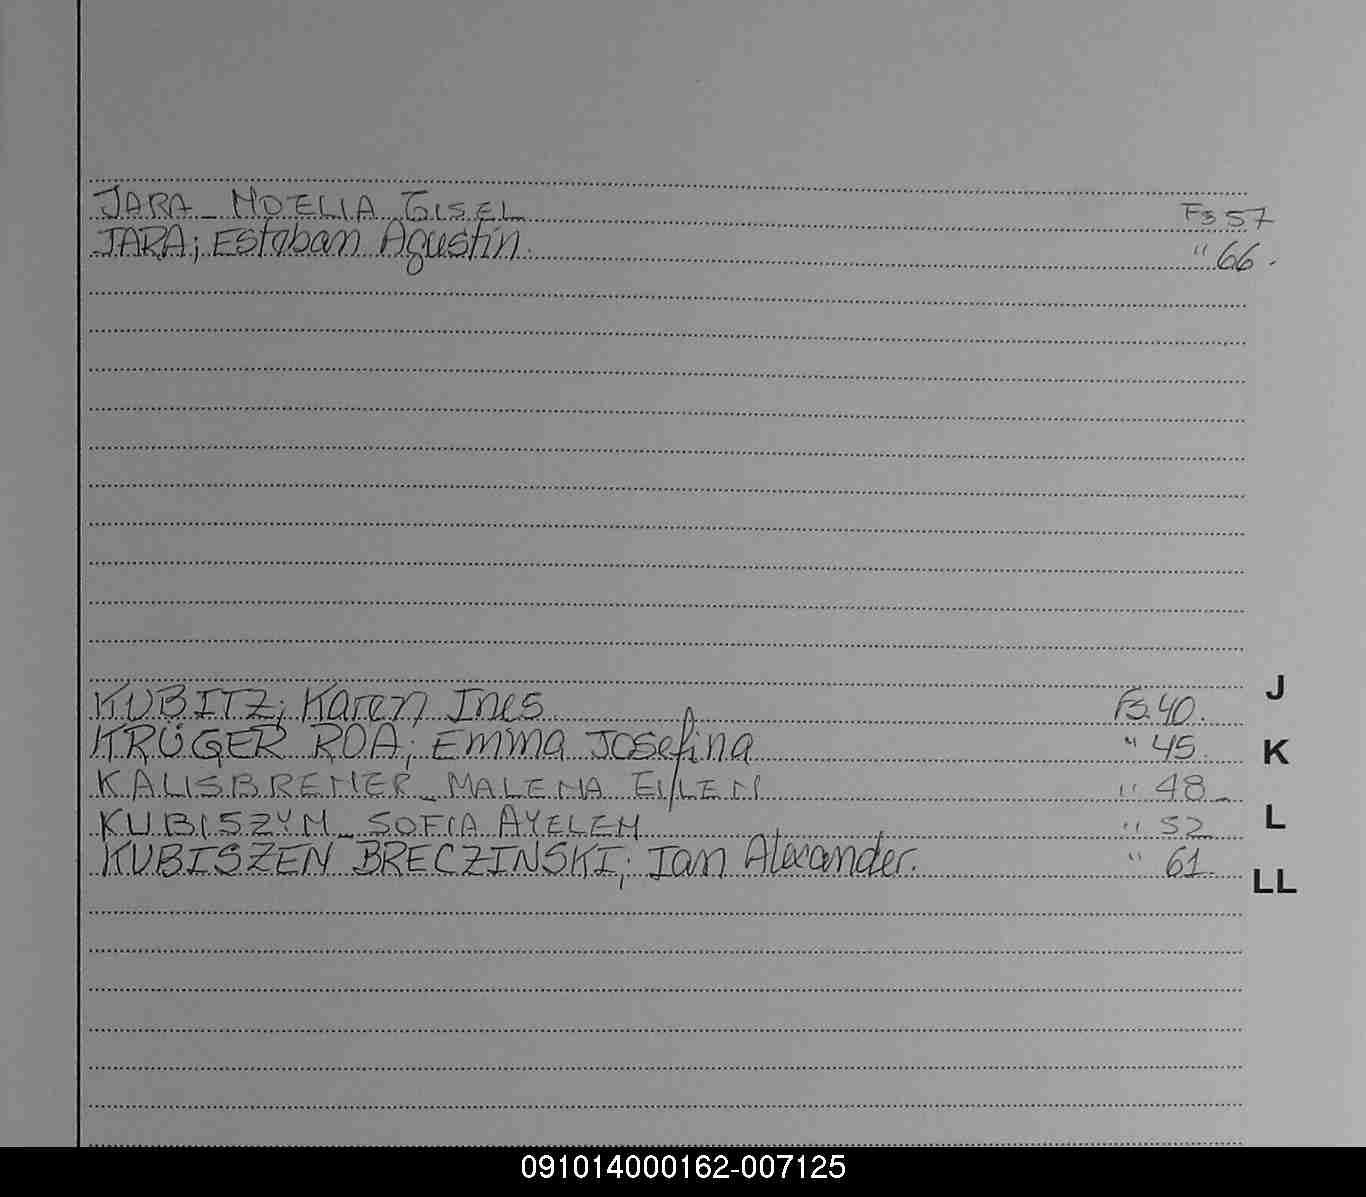 JARA_NOELIA GISEL Fs 57
JARA; Esteban Agustin. " 66.
J
KUBITZ; Karen Ines. Fs 40.
KRÜGER ROA; Emma Josefina " 45.
K
KALISBRENER_MALENA EILEN " 48_
KUBISZYN_SOFIA AYELEN " 52
L
KUBISZEN BRECZINSKI; Ian Alexander. " 61.
LL
091014000162-007125